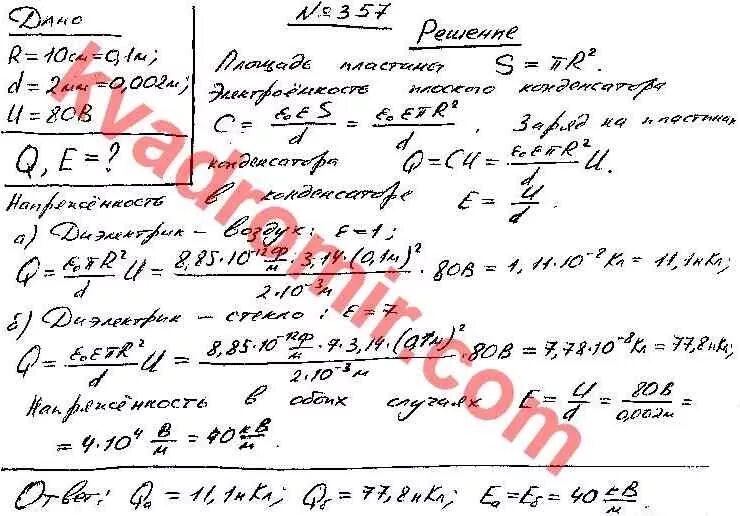 №357
Дано
R = 10см = 0,1м;
d = 2мм = 0,002м;
U = 80В
Q, E = ?
Решение
Площадь пластины S = πR².
Электроёмкость плоского конденсатора
C = ε₀εS/d = ε₀επR²/d. Заряд на пластинах
конденсатора Q = CU = ε₀επR²/d U.
Напряжённость в конденсаторе E = U/d.
а) Диэлектрик – воздух: ε = 1;
Q = ε₀πR²/d U = 8,85·10⁻¹² Ф/м · 3,14·(0,1м)²/2·10⁻³м · 80В = 1,11·10⁻⁸Кл = 11,1нКл;
б) Диэлектрик – стекло: ε = 7
Q = ε₀επR²/d U = 8,85·10⁻¹² Ф/м · 7·3,14·(0,1м)²/2·10⁻³м · 80В = 7,78·10⁻⁸Кл = 77,8нКл;
Напряжённость в обоих случаях E = U/d = 80В/0,002м =
= 4·10⁴ В/м = 40 кВ/м.
Ответ: Qа = 11,1нКл; Qб = 77,8нКл; Eа = Eб = 40 кВ/м.
kvadromir.com